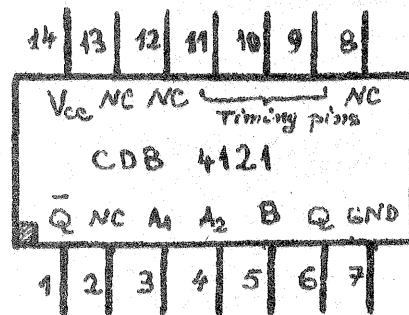 14 13 12 11 10 9 8
Vcc NC NC Timing pins NC
CDB 4121
Q̄ NC A1 A2 B Q GND
1 2 3 4 5 6 7